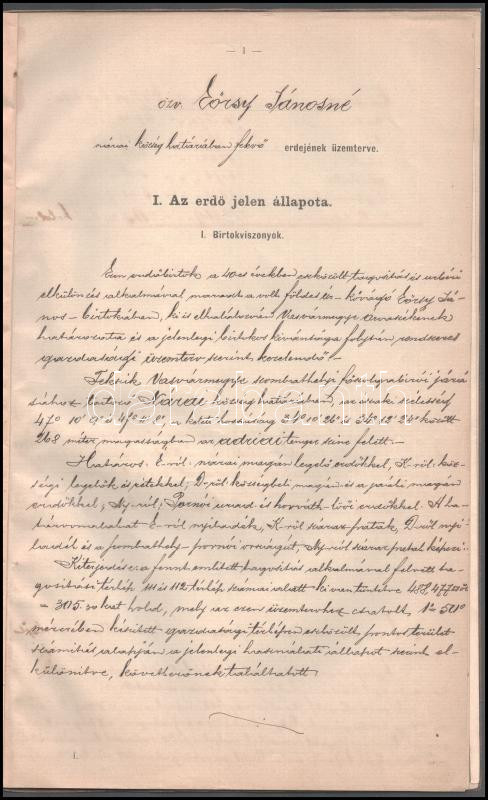 — 1 —
özv. Eőrsy Jánosné
nárai község határában fekvő erdejének üzemterve.
I. Az erdő jelen állapota.
1. Birtokviszonyok.
Ezen erdőbirtok a 40es években eszközölt tagosítás és urbéri
elkülönzés alkalmával maradt a volt földes úr Eőrsy Já-
nos birtokában, ki is elhalálozván Vasvármegye
határozata és a jelenlegi birtokos kívánsága folytán rendszeres
gazdasági üzemterv szerint kezelendő.
Fekszik Vasvármegye szombathelyi főszolgabírói járá-
sához tartozó Nárai község határában, az északi szélesség
47° 10' és 47° a keleti hosszúság 34° és 34° között
268 méter magasságban az adriai tenger színe felett.
Határos: É-ról: nárai magán legelő erdőkkel, K-ről: köz-
ségi legelők és rétekkel; D-ről: községbeli magán és a jaáki magán
erdőkkel; Ny-ról: Pornói urad. és horváth-lövői erdőkkel. A ha-
tárvonalakat É-ról nyiladék, K-ről száraz határ, D-ről nyi-
ladék és a szombathely-pornói országút, Ny-ról száraz határ képezi.
Kiterjedése: a fennt említett tagosítás alkalmával felvett ta-
gosítási térkép 111 és 112 térkép számai alatt ki van tüntetve 488,477 □öl
= 305.30 kat hold, mely az ezen üzemtervhez csatolt, 1" = 50°
mércében készített gazdasági térképen eszközölt pontos terület
számítás alapján a jelenlegi használati állapot szerint el-
különítve, következőnek találtatott:
1.
Darabanth